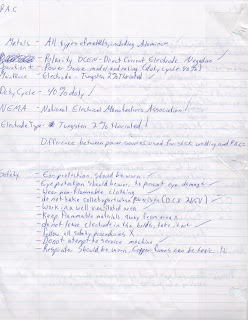 P.A.C
Metals - All types of metals, including Aluminum
Polarity DCEN - Direct Current Electrode Negative
Power Source, model and rating (duty cycle 40%)
Electrode - Tungsten 2% thoriated
Duty Cycle - 40% duty
NEMA - National Electrical Manufacturers Association
Electrode Type Tungsten 2% thoriated
Difference between power sources used for stick welding and P.A.C
Safety - Ear protection should be worn
- Eye protection should be worn to prevent eye damage
- Wear non-flammable clothing
- do not
- Work in a well ventilated area
- Keep flammable materials away from area X
- do not leave electrode in the holder, take it out
- follow all safety procedures X
- Do not attempt to service machine
- Respirator should be worn, Copper fumes can be toxic